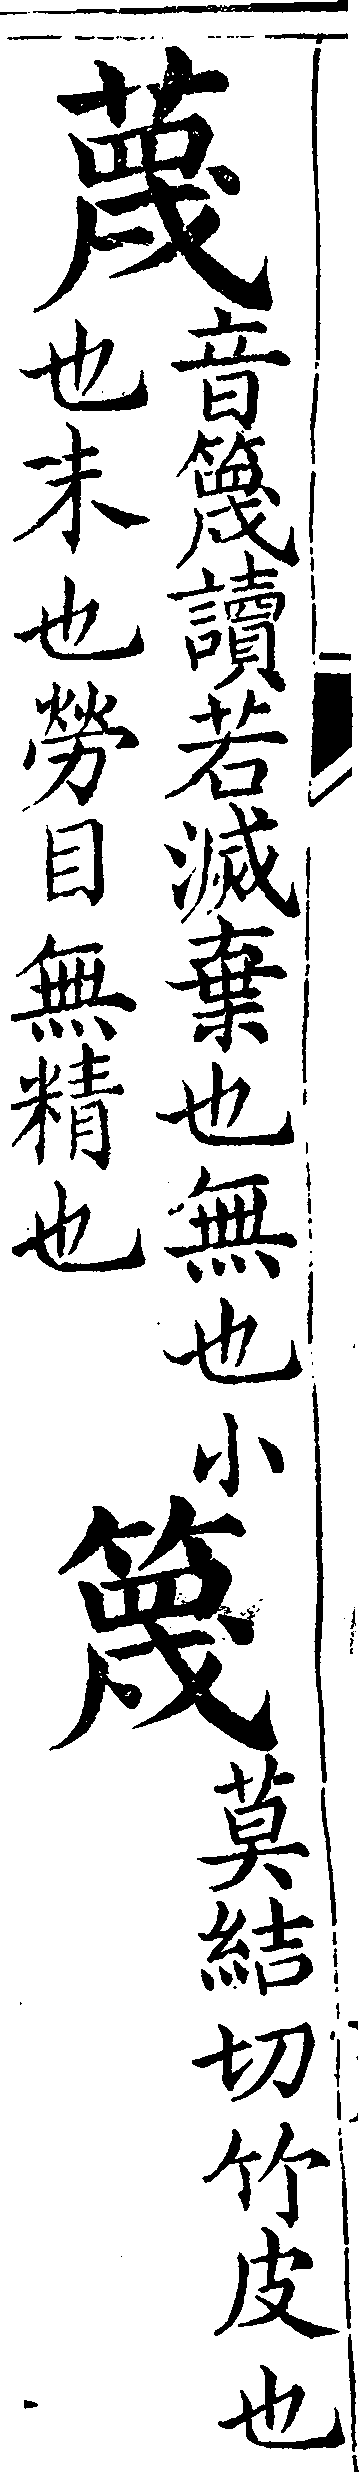 蔑
音篾讀若滅棄也無也小
也末也勞目無精也
篾
莫結切竹皮也